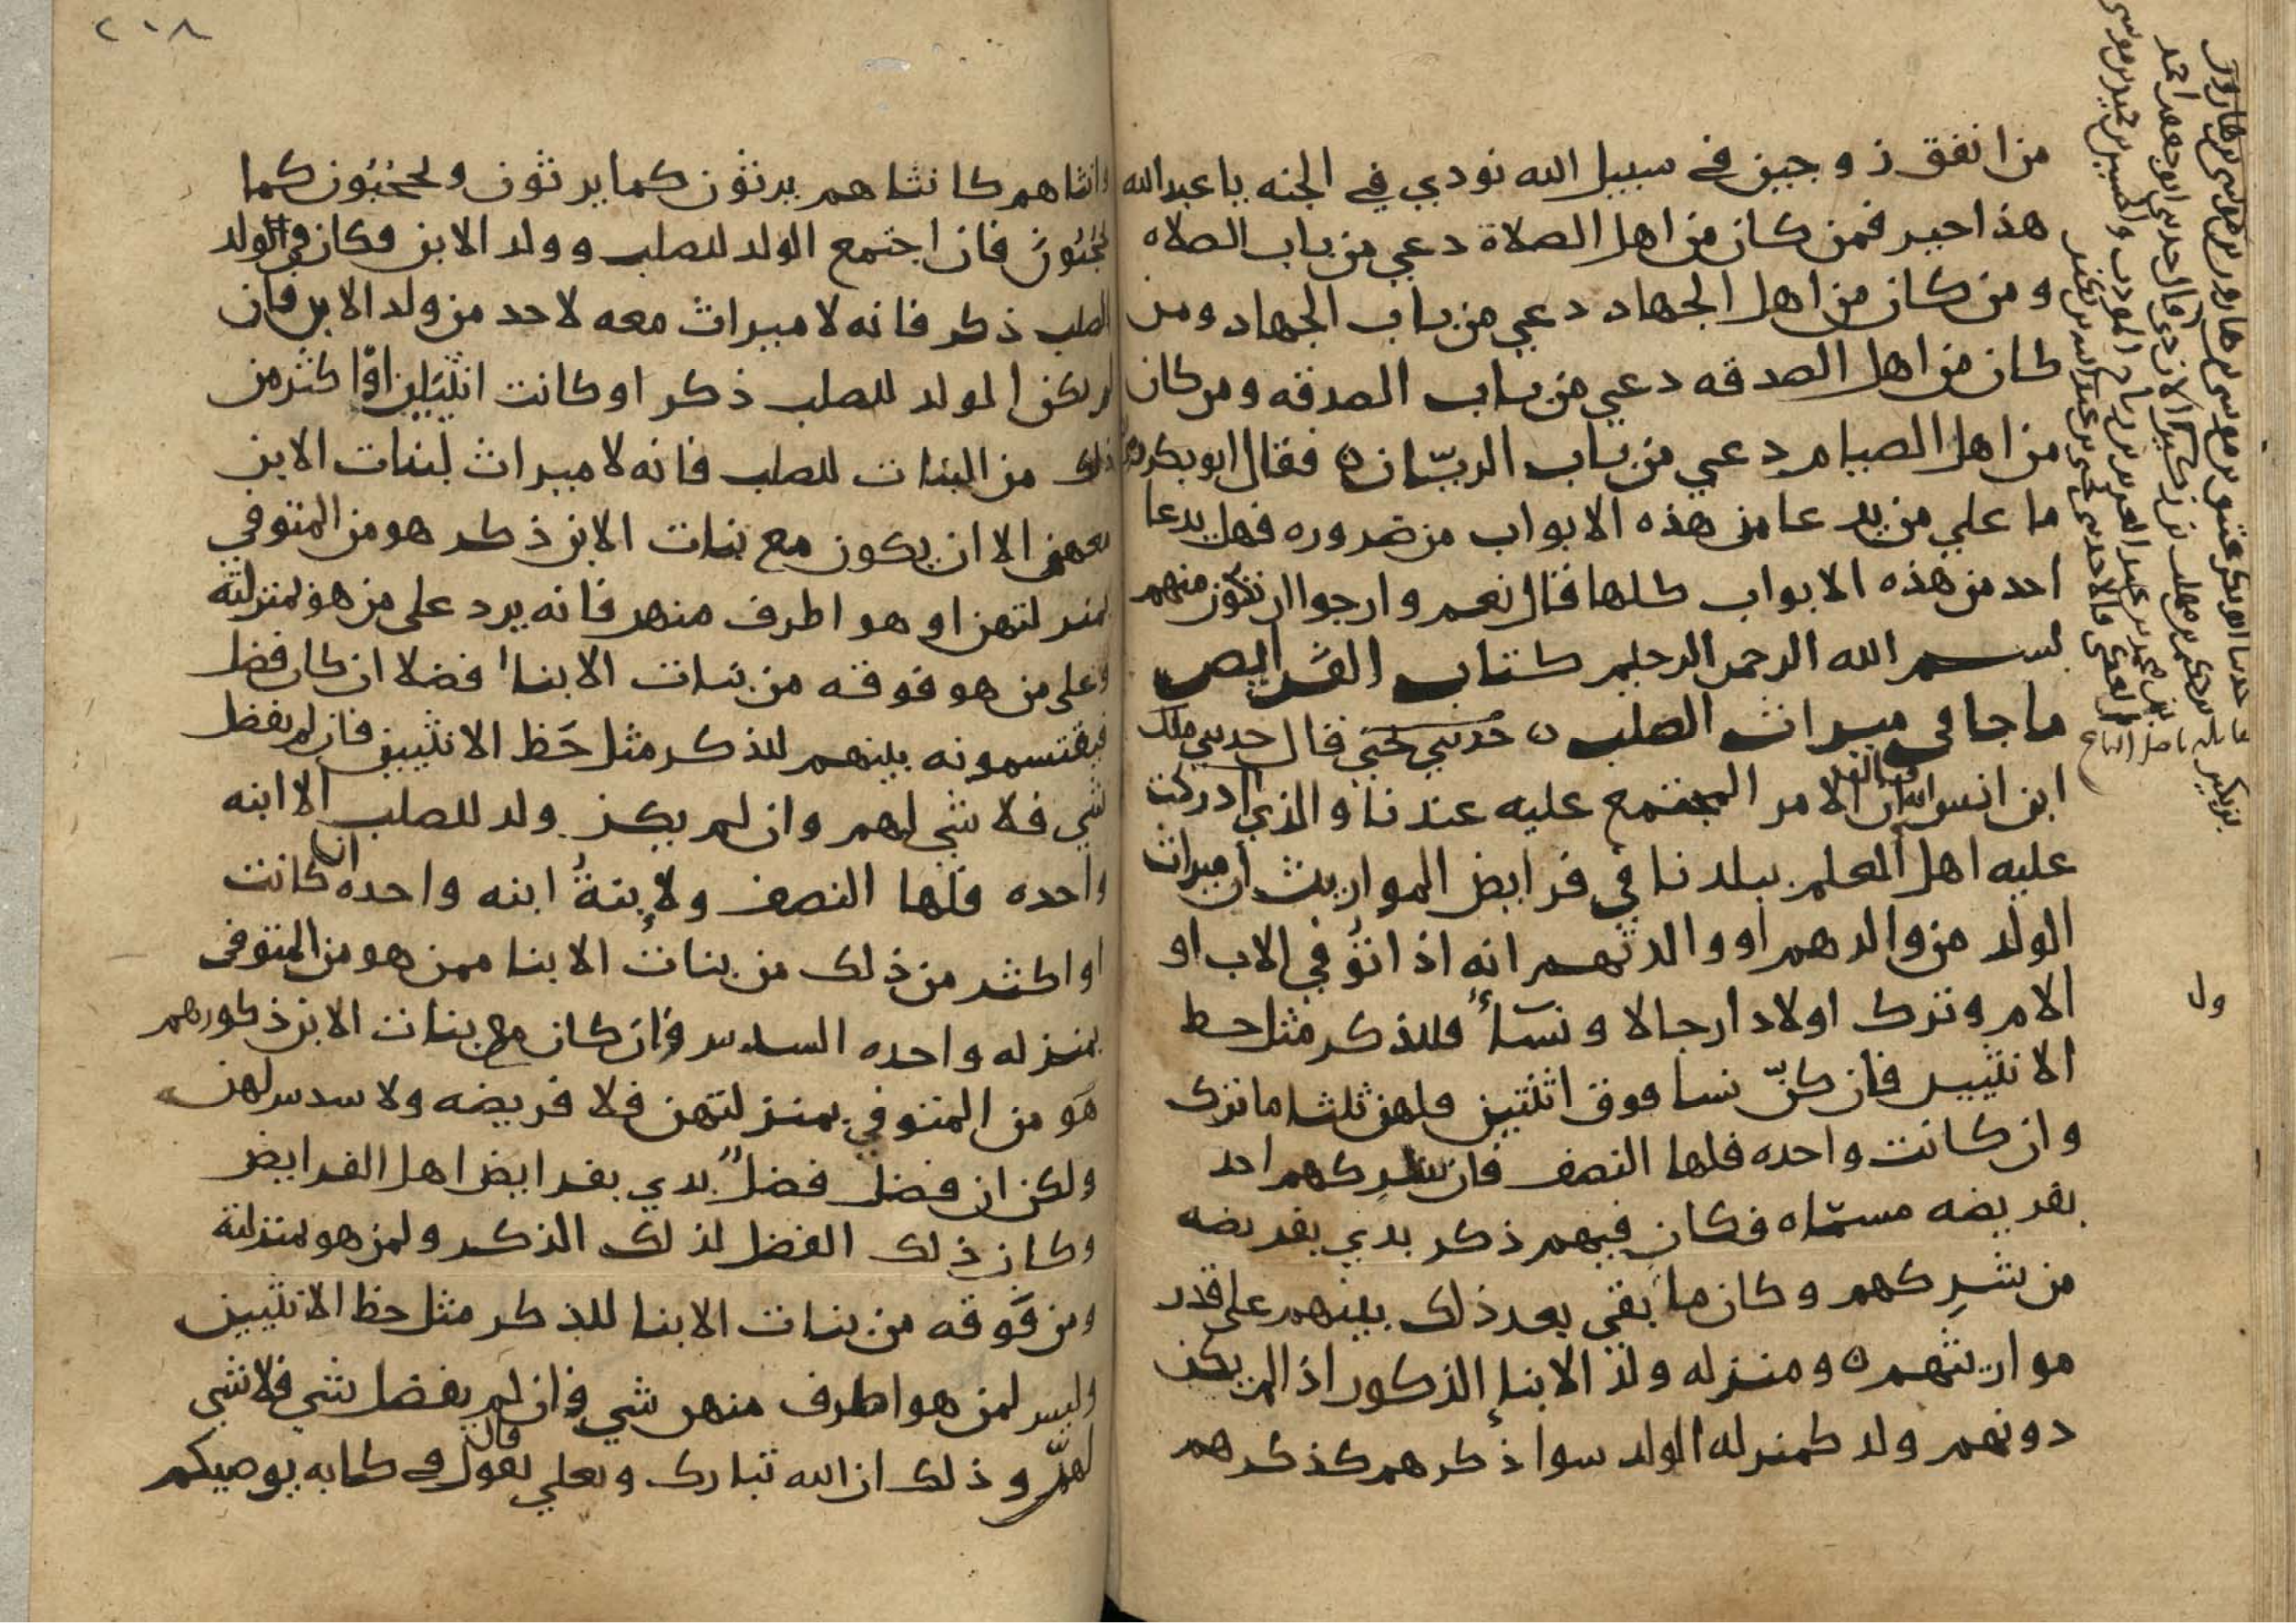 من انفق زوجين في سبيل الله نودي في الجنه يا عبد الله
هذا خير فمن كان من اهل الصلاة دعي من باب الصلاه
ومن كان من اهل الجهاد دعي من باب الجهاد ومن
كان من اهل الصدقه دعي من باب الصدقه ومن كان
من اهل الصيام دعي من باب الريّان ه فقال ابو بكر
ما علي من يدعا من هذه الابواب من ضروره فهل يدعا
احد من هذه الابواب كلها قال نعم وارجوا ان تكون منهم
بسم الله الرحمن الرحيم كتاب الفرايض
ما جا في ميراث الصلب ه حدثني يحيى قال حدثني ملك
ابن انس ان الامر المجتمع عليه عندنا والذي ادركت
عليه اهل العلم ببلدنا في فرايض المواريث ان ميراث
الولد من والدهم او والدتهم انه اذا توُفي الاب او
الام وتركا اولادا رجالا ونسآءً فللذكر مثل حظ
الانثيين فان كنّ نسا فوق اثنتين فلهن ثلثا ما ترك
وان كانت واحده فلها النصف فان شركهم احد
بفريضه مسمّاه فكان فيهم ذكر بدي بفريضه
من شركهم وكان ما بقي بعد ذلك بينهم على قدر
مواريثهم ه ومنزله ولد الابناء الذكور اذا لم يكن
دونهم ولد كمنزله الولد سوا ذكرهم كذكرهم
ول
٢٠٨
وانثاهم كانثاهم يرثون كما يرثون ويحجُبُون كما
يحجُبُون فان اجتمع الولد للصلب وولد الابن وكان في الولد
للصلب ذكر فانه لا ميراث معه لاحد من ولد الابن فان
لم يكن الولد للصلب ذكر او كانت انثيين او اكثر من
ذلك من البنات للصلب فانه لا ميراث لبنات الابن
معهن الا ان يكون مع بنات الابن ذكر هو من المتوفي
بمنزلتهن او هو اطرف منهن فانه يرد على من هو بمنزلته
وعلى من هو فوقه من بنات الابنا فضلا ان كان فضل
فيقتسمونه بينهم للذكر مثل حَظ الانثيين فان لم يفضل
شي فلا شي لهم وان لم يكن ولد للصلب الا ابنه
واحده فلها النصف ولابنةُ ابنه واحده ان كانت
او اكثر من ذلك من بنات الابنا ممن هو من المتوفى
بمنزله واحده السدس فان كان مع بنات الابن ذكورهم
هَو من المتوفي بمنزلتهن فلا فريضه ولا سدس لهن
ولكن ان فضل فضلٌ بدي بفرايض اهل الفرايض
وكان ذلك الفضل لذلك الذكر ولمن هو بمنزلته
ومن فَوقه من بنات الابنا للذكر مثل حظ الانثيين
وليس لمن هو اطرف منهن شي فان لم يفضل شي فلا شي
لهنّ وذلك ان الله تبارك وتعلي يقول قال في كتابه يوصيكم